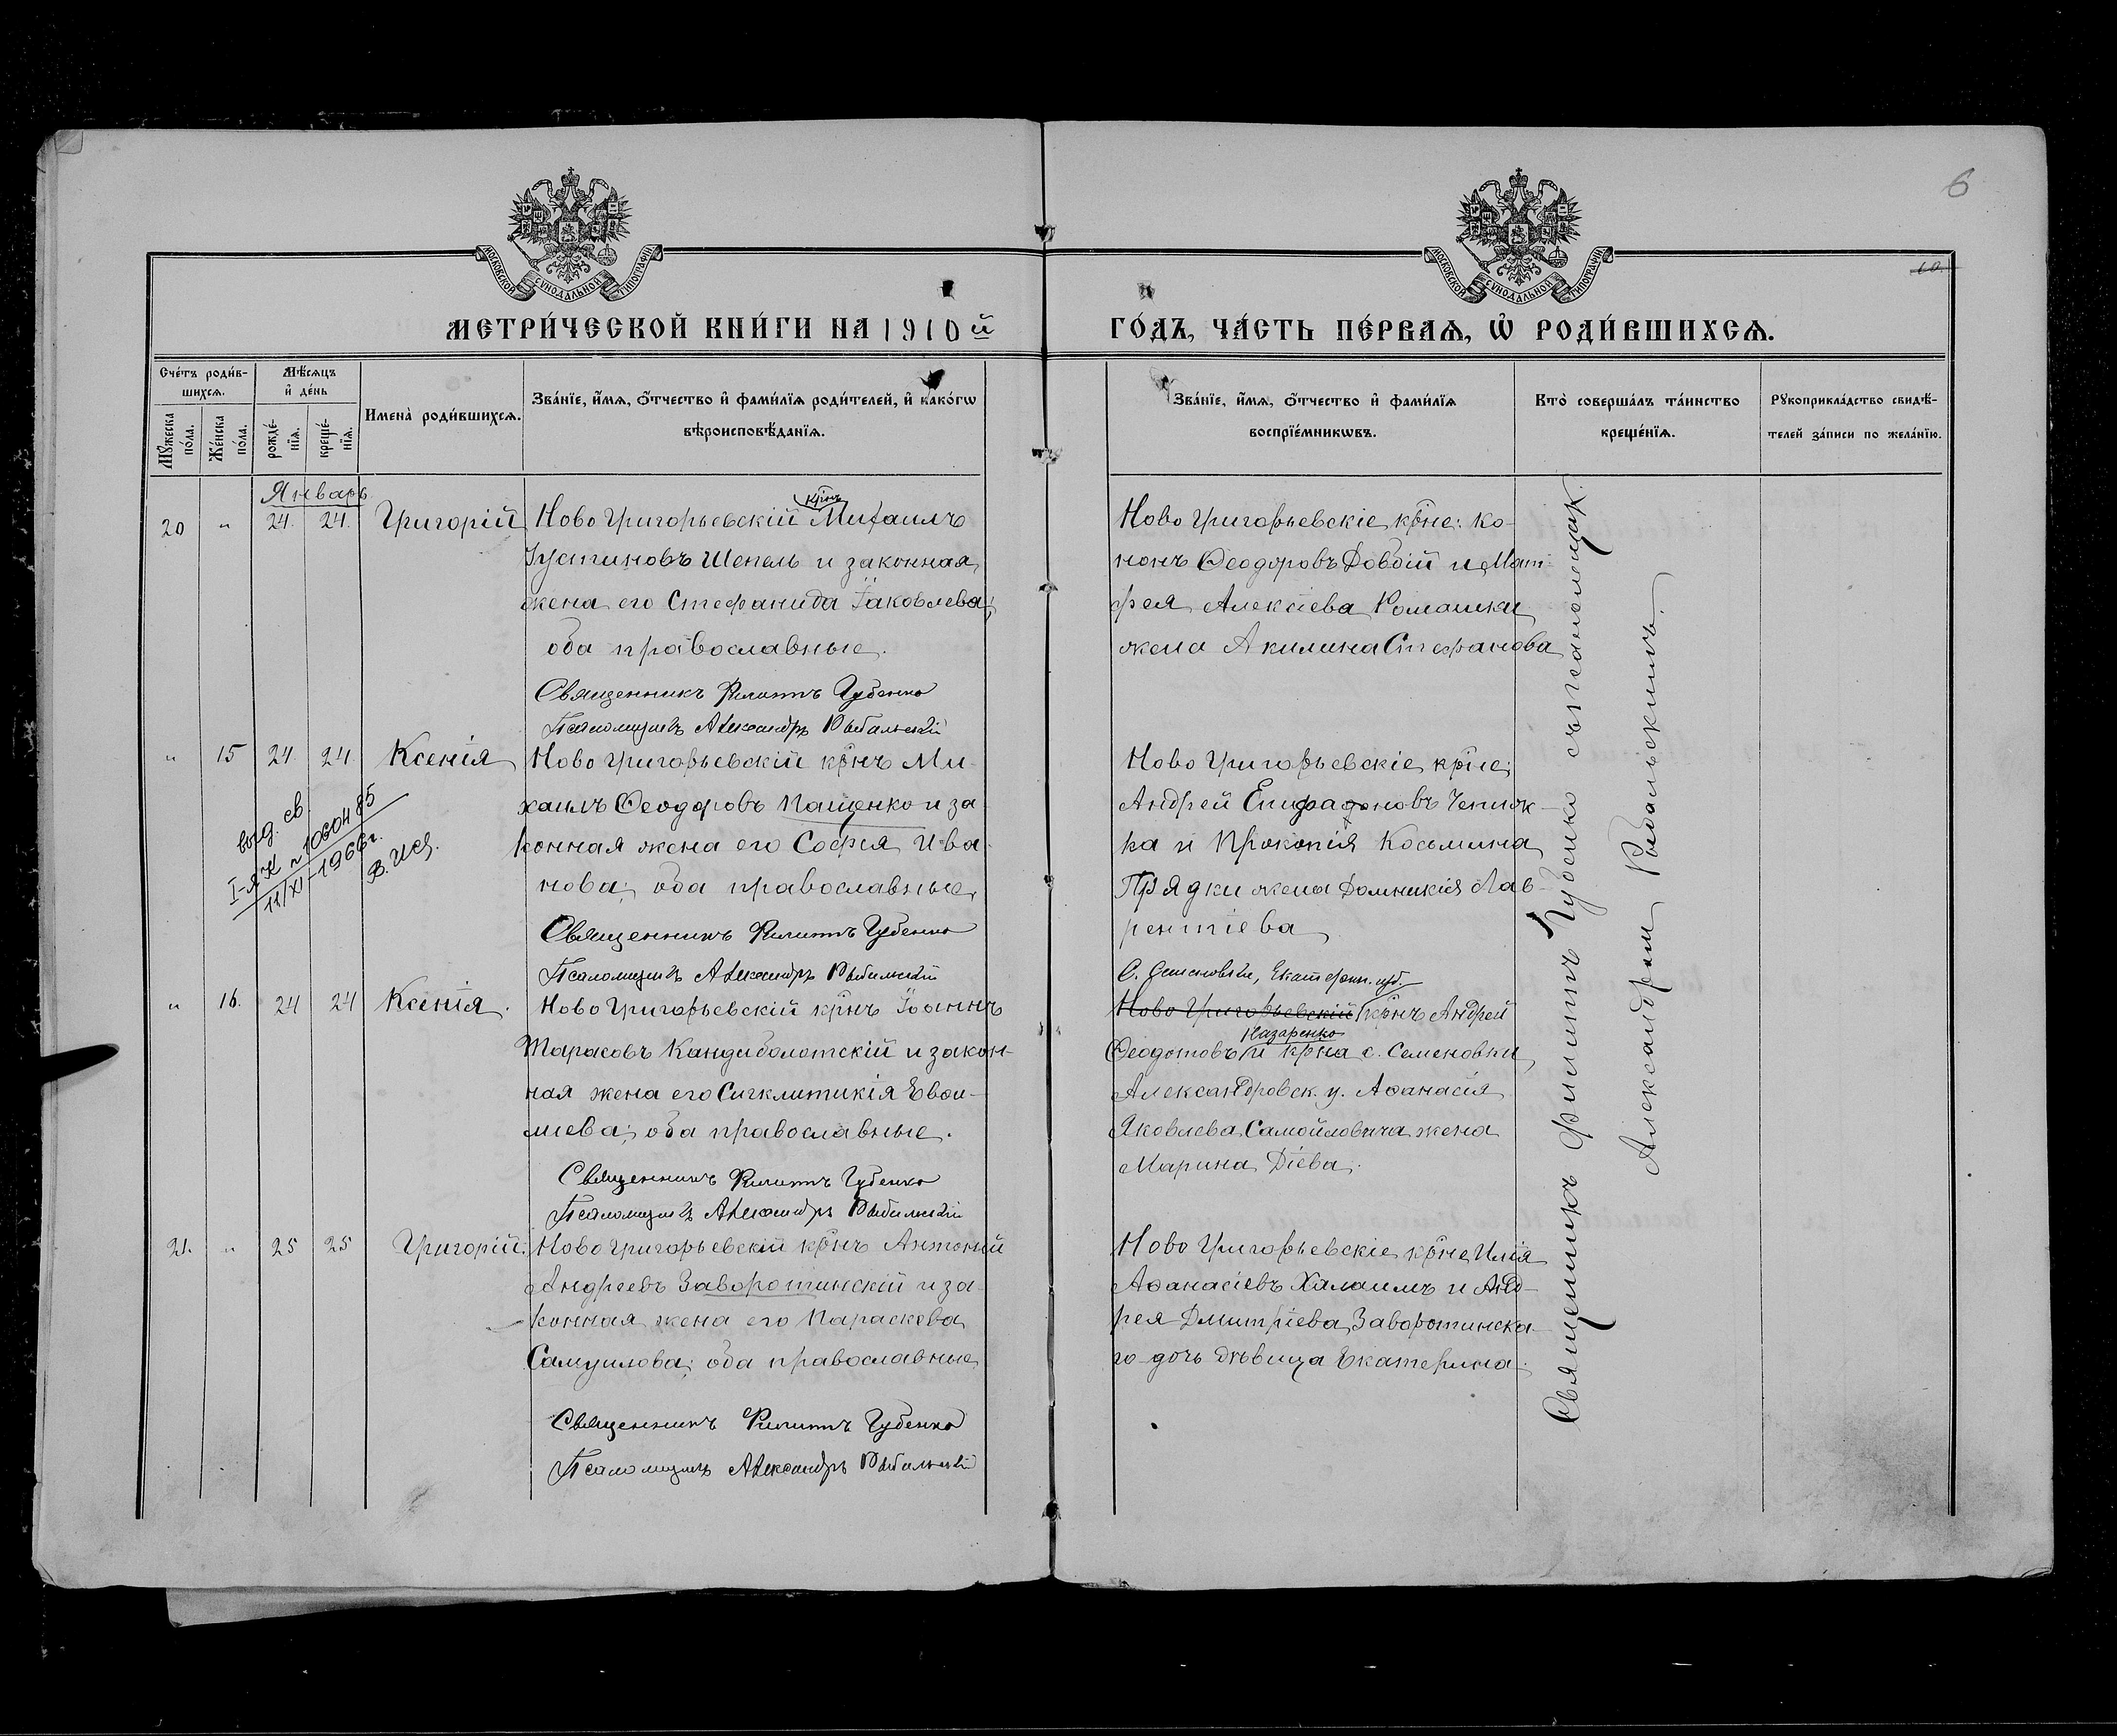 6
10.
МОСКОВСКОЙ СѴНОДАЛЬНОЙ ТИПОГРАФІИ.
МОСКОВСКОЙ СѴНОДАЛЬНОЙ ТИПОГРАФІИ.
МЕТРИ́ЧЕСКОЙ КНИ́ГИ НА 1910й ГО́ДЪ, ЧА́СТЬ ПЕ́РВАѦ, Ѽ РОДИ́ВШИХСѦ.
Сче́тъ роди́в-
шихсѧ.
Мꙋ́жеска по́ла.
Же́нска по́ла.
Мѣ́сѧцъ
и҆ де́нь
рожде́-
нїѧ.
креще́-
нїѧ.
Имена̀ роди́вшихсѧ.
Зва́нїе, и҆́мѧ, ѻ҆́тчество и҆ фами́лїѧ роди́телей, и҆ како́гѡ
вѣроисповѣ́данїѧ.
Зва́нїе, и҆́мѧ, ѻ҆́тчество и҆ фами́лїѧ
воспрїе́мникѡвъ.
Кто̀ соверша́лъ та́инство
креще́нїѧ.
Рꙋкоприкла́дство свидѣ́-
телей за́писи по жела́нїю.
Январь
20 " 24. 24. Григорій
Ново Григорьевскій крнъ Михаилъ
Іустиновъ Шепель и законная
жена его Стефанида Іаковлева;
оба православные.
Священникъ Филиппъ Губенко
Псаломщикъ Александръ Рыбальскій
Ново Григорьевскіе крне: Ко-
нонъ Ѳеодоровъ Довбій и Мат-
фея Алексіева Ромашки
жена Акилина Стефанова
" 15 24. 24. Ксенія
Ново Григорьевскій крнъ Ми-
хаилъ Ѳеодоровъ Пащенко и за-
конная жена его Софія Ива-
нова; оба православные.
Священникъ Филиппъ Губенко
Псаломщикъ Александръ Рыбальскій
выд. св.
I-ЯК № 1060485
11/XI-1966 г.
Ново Григорьевскіе крне:
Андрей Епифановъ
ка и Прокопія Косьмина
Прядки жена Домникія Лав-
рентіева
" 16. 24 24 Ксенія.
Ново Григорьевскій крнъ Іоаннъ
Тарасовъ Кандыболотскій и закон-
ная жена его Сигклитикія Евѳи-
міева; оба православные.
Священникъ Филиппъ Губенко
Псаломщикъ Александръ Рыбальскій
С. Семеновки, Екатерин. губ.
Ново Григорьевскій крнъ Андрей
Назаренко
Ѳеодотовъ и крна с. Семеновки
Александровск. у. Аѳанасія
Яковлева Самойловича жена
Марина Діева.
21. " 25 25 Григорій.
Ново Григорьевскій крнъ Антоній
Андреевъ Заворотинскій и за-
конная жена его Параскева
Самуилова; оба православные
Священникъ Филиппъ Губенко
Псаломщикъ Александръ Рыбальскій
Ново Григорьевскіе крне Илія
Аѳанасіевъ Халаимъ и Анд-
рея Дмитріева Заворотинска-
го дочь дѣвица Екатерина.
Священникъ Филиппъ Губенко съ псаломщик.
Александромъ Рыбальскимъ.